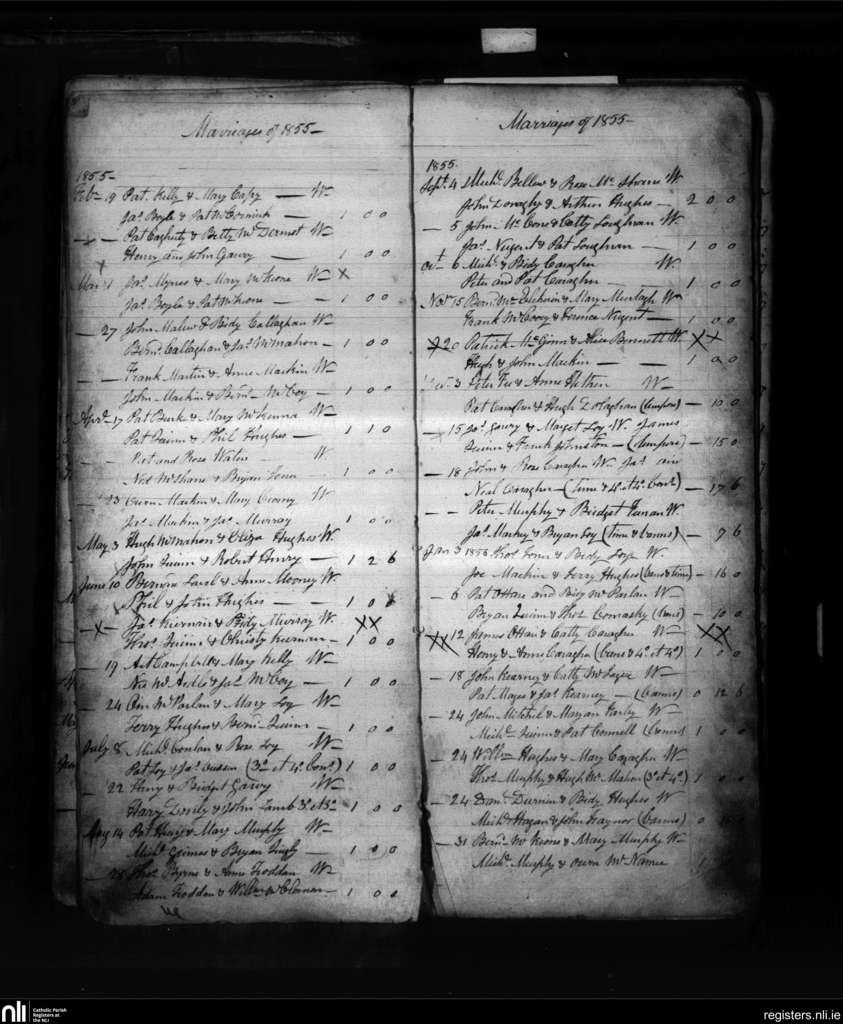 Marriages of 1855-
1855-
Feb- 19 Pat. Kelly & Mary Casy — W-
Jas Boyle & Pat McCormick — 1 0 0
— Pat & Betty McDermot W-
Henry and John Garvy — 1 0 0
Mar 1 Jas Mynes & Mary McKeone W- X
Jas Boyle & Pat McKeone — 1 0 0
— 27 John Malew & Bidy Callaghan W-
Bernd Callaghan & Jas McMahon — 1 0 0
— — Frank Martin & Anne Mackin W-
John Mackin & Bernd McCoy — 1 0 0
April- 17 Pat Burk & Mary McKenna W-
Pat Quinn & Phil Hughes — 1 1 0
— — Pat and Rose Waters — W
Ned McShane & Bryan — 1 0 0
— 23 Owen Mackin & Mary W
Jas Mackin & Jas Murray 1 0 0
May 3 Hugh McMahon & Eliza Hughes W-
John Quinn & Robert Henry — 1 2 6
June 10 & Anne Mooney W-
Phil & John Hughes — 1 0 0
—X— Jas Kiernan & Bidy Murray W. XX
Thos Quinn & Christy Kiernan — 1 0 0
— 19 Art Campbell & Mary Kelly W-
Ned McArdle & Jas McCoy — 1 0 0
— 24 McParlan & Mary Loy W-
Terry Hughes & Bernd Quinn — 1 0 0
July 8 Michl Conlan & Rose Loy W-
Pat Loy & Jas (3o et 4o Con.) 1 0 0
— 22 Henry & Bridget Garvy W-
Harry & John Lamb 3o et 3o — 1 0 0
14 Pat & Mary Murphy W-
Michl Grimes & Bryan — 1 0 0
— 28 Thos Byrne & Anne Froddan W-
Adam Froddan & Willm — 1 0 0
Marriages of 1855-
1855.
Sept. 4 Michl Bellew & Rose McShane W.
John Donaghy & Arthur Hughes — 2 0 0
— 5 John McCone & Catty Loughran W.
Jas Nugent & Pat Loughran — 1 0 0
Oct 6 Michl & Bidy Caragher W.
Peter and Pat Caragher — 1 0 0
Nov 15 Bernd & Mary Murtagh W-
Frank McCovy & Nugent — 1 0 0
20 Patrick McGinn & Alice Bennett W. XX
Hugh & John Mackin — 1 0 0
3 Peter Fee & Anne W-
Pat Caragher & Hugh (tempore) — 10 0
— 15 Jas & Marget Loy W- James
Quinn & Frank Johnston — (tempore) — 15 0
— 18 John & Rose Caragher W- Jas and
Neal Caragher — (time & 4o et 4o Cont.) — 17 6
— — Peter Murphy & Bridget W.
Jas Markey & Bryan Loy (time & banns) — 7 6
Jan 3 1856 Thos & Bidy Loy W.
Joe Mackin & Terry Hughes (bans & time) — 16 0
— 6 Pat and Bidy McParlan W-
Bryan Quinn & Thos Comasky (bans) — 10 0
XX 12 James & Catty Caragher W- XX
Henry & Anne Caragher (bans & 4o et 4o) 1 0 0
— 18 John Kearney & Catty W-
Pat & Jas Kearney — (banns) 0 12 6
— 24 John Mitchel & Maryan W-
Michl Quinn & Pat Connell (banns) 1 0 0
— 24 Willm Hughes & Mary Caragher W-
Thos Murphy & Hugh McMahon (3o et 4o) 1 0 0
— 24 Danl & Bidy Hughes W
Michl Hagan & John Traynor (banns) 0
— 31 Bernd McKeone & Mary Murphy W-
Michl Murphy & Owen McNamee
nli
Catholic Parish
Registers at
the NLI
registers.nli.ie